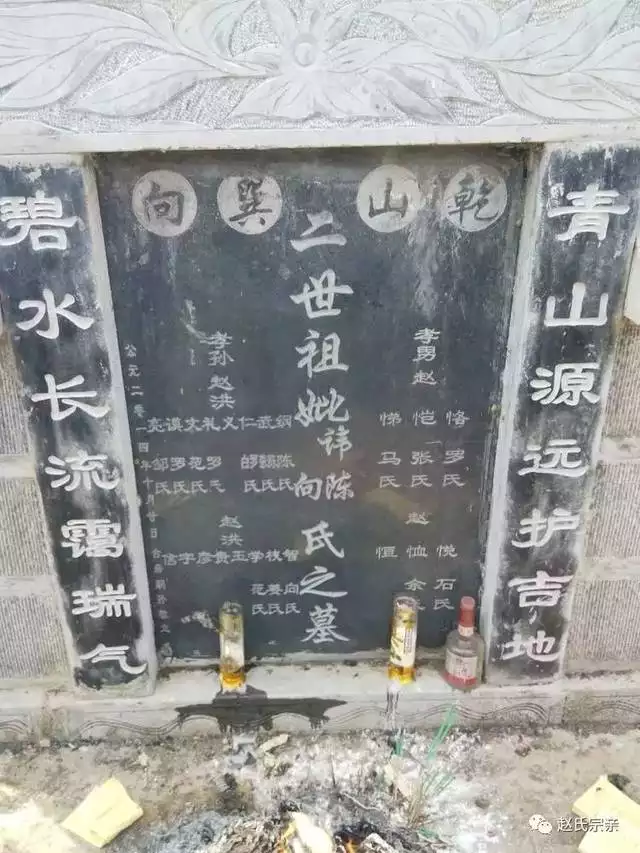 乾山巽向
青山源远护吉地
二世祖妣讳陈向氏之墓
孝男赵
恪 罗氏
恺 张氏
悌 马氏
赵
悦 石氏
恤 余
恒
孝孙赵洪
纲 陈氏
武
仁
义
礼 罗氏
文 范氏
谟 罗氏
亮 邹氏
赵洪
智 向氏
枝 姜氏
学 范氏
玉
贵
彦
字
信
公元二零一四年十月廿日
碧水长流霭瑞气
赵氏宗亲